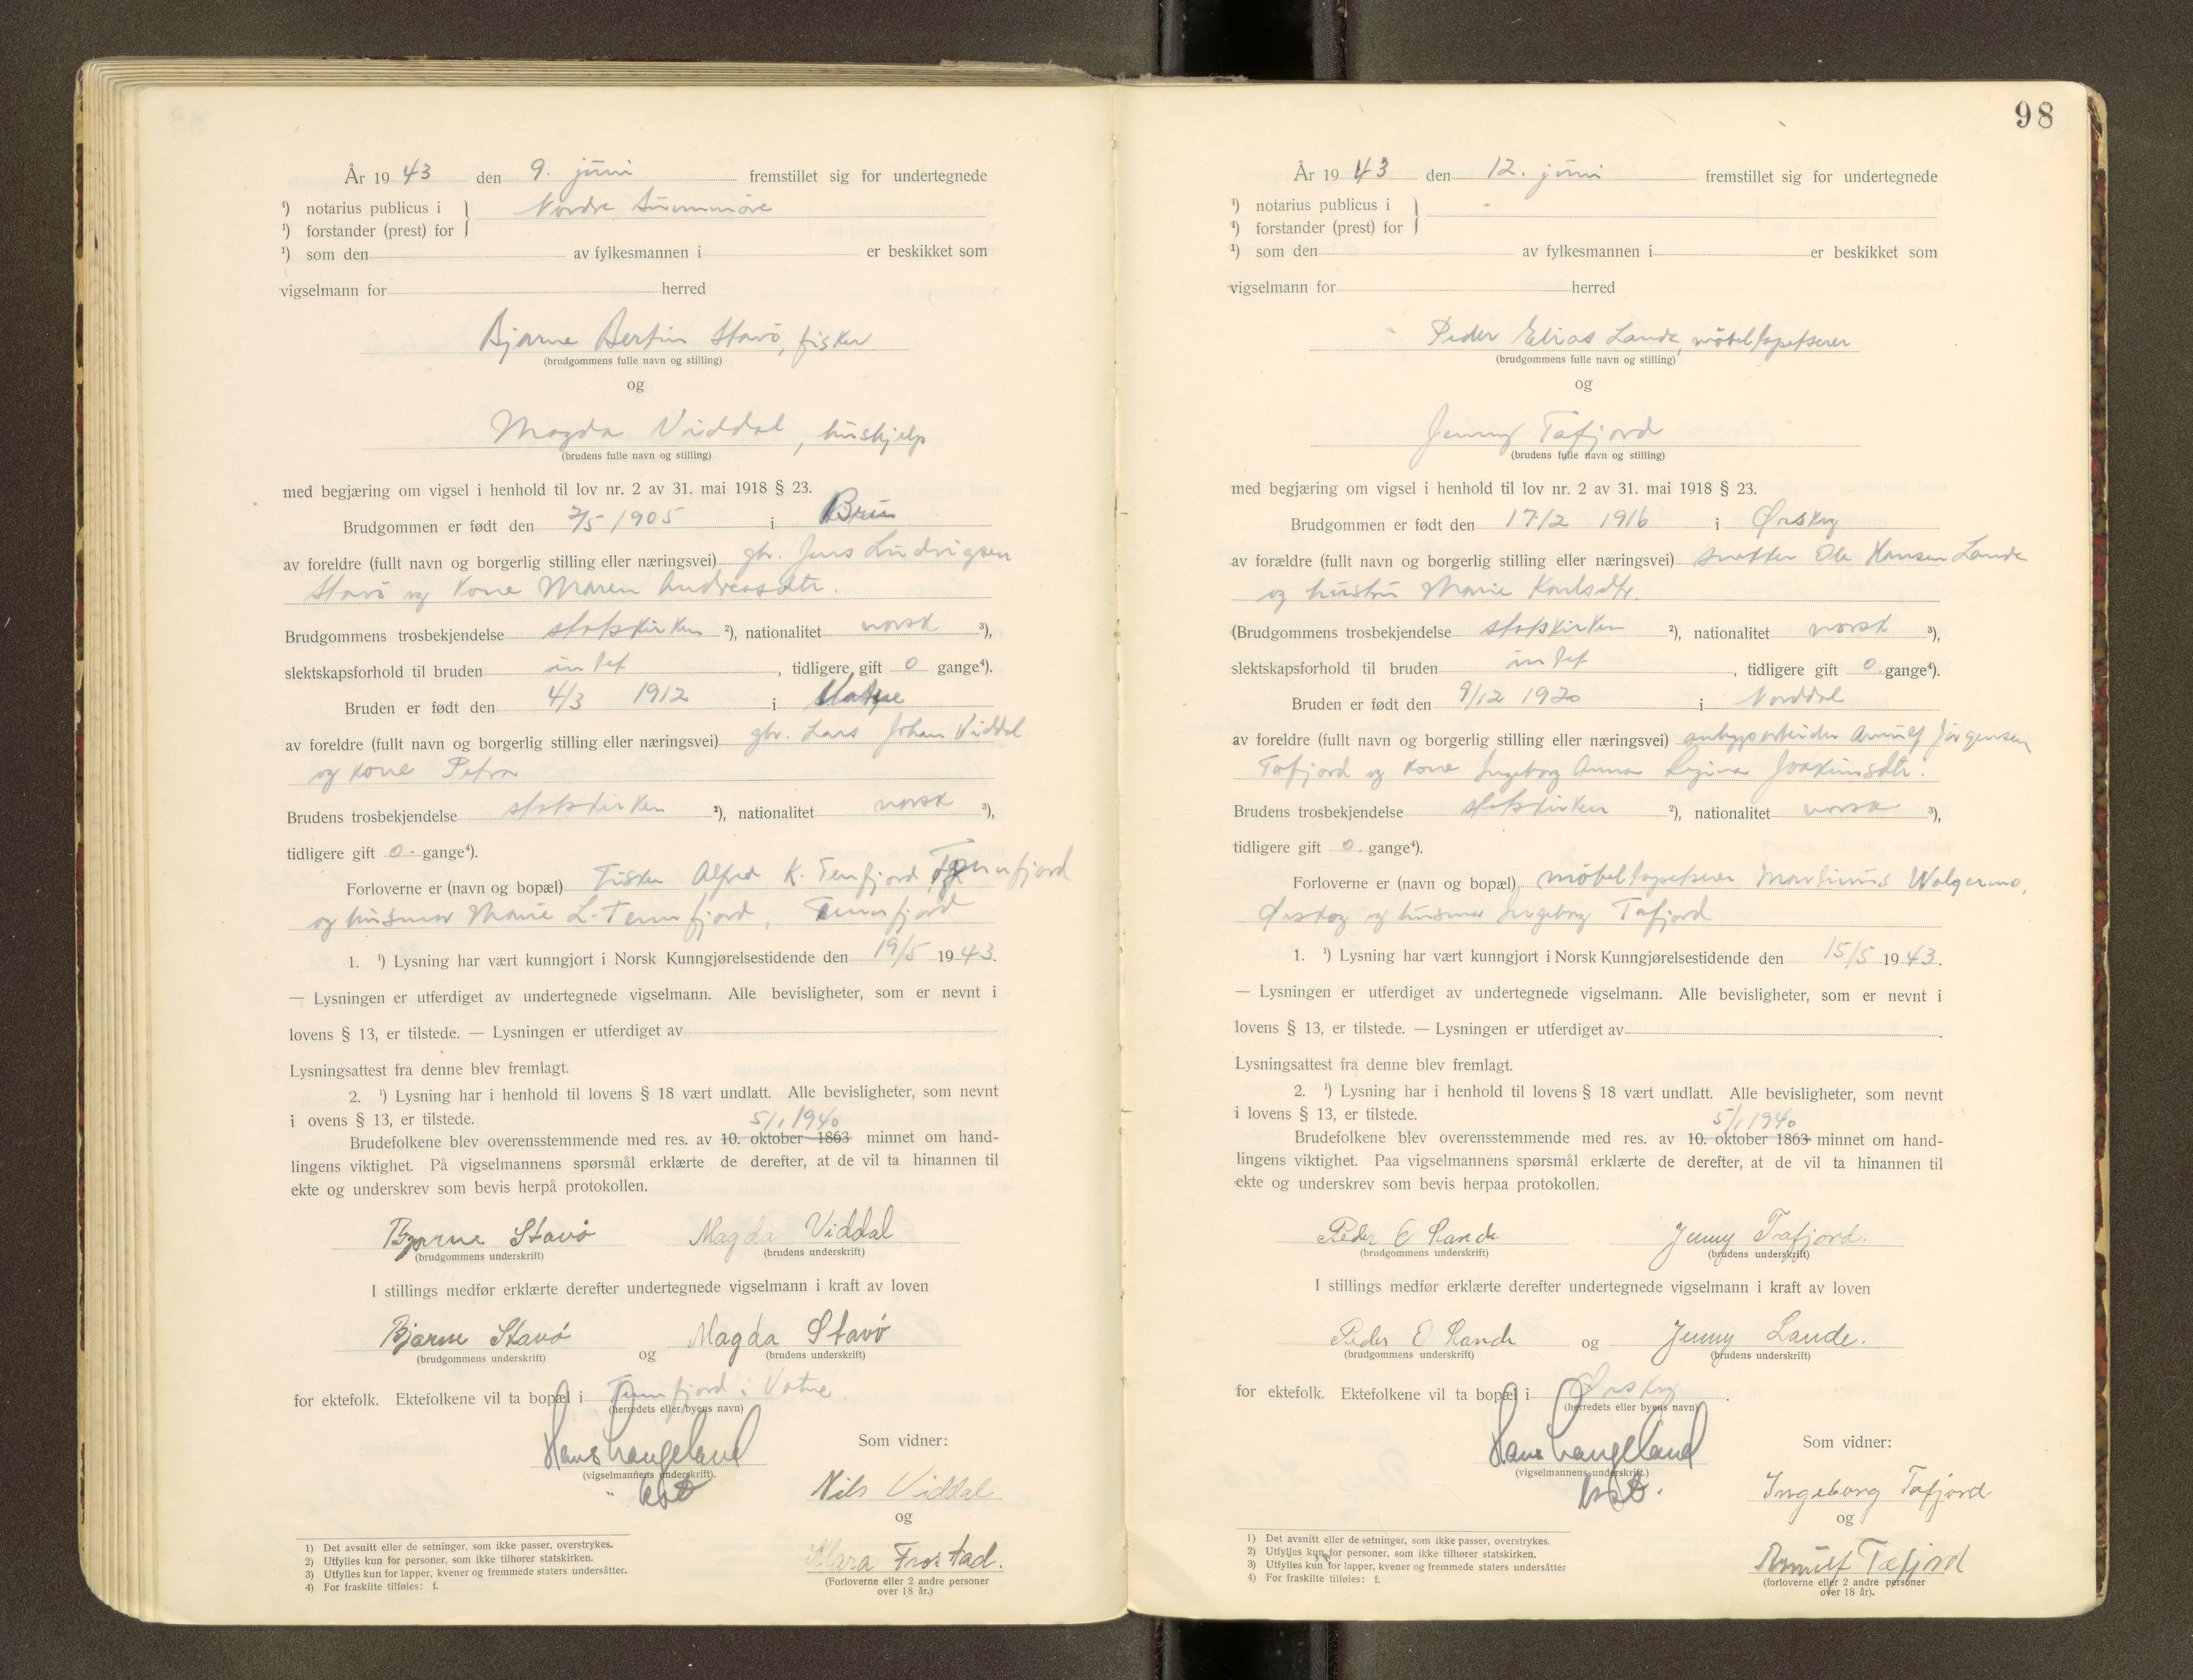 År 19 43 den 9. juni fremstillet sig for undertegnede
¹) notarius publicus i } Nordre Sunnmøre
¹) forstander (prest) for
¹) som den av fylkesmannen i er beskikket som
vigselmann for herred
Bjarne Bertin Stavø, fisker
(brudgommens fulle navn og stilling)
og
Magda Viddal, hushjelp
(brudens fulle navn og stilling)
med begjæring om vigsel i henhold til lov nr. 2 av 31. mai 1918 § 23.
Brudgommen er født den 2/5 1905 i
av foreldre (fullt navn og borgerlig stilling eller næringsvei) gbr. Jens Ludvigsen
Stavø og kone Maren Andreasdtr.
Brudgommens trosbekjendelse statskirken ²), nationalitet norsk ³),
slektskapsforhold til bruden intet , tidligere gift 0 gange⁴).
Bruden er født den 4/3 1912 i Vatne
av foreldre (fullt navn og borgerlig stilling eller næringsvei) gbr. Lars Johan Viddal
og kone Petra
Brudens trosbekjendelse statskirken ²), nationalitet norsk ³),
tidligere gift 0. gange⁴).
Forloverne er (navn og bopæl) Fisker Alfred K. Tenfjord, Tennfjord
og husmor Marie L. Tennfjord, Tennfjord
1. ¹) Lysning har vært kunngjort i Norsk Kunngjørelsestidende den 19/5 19 43.
— Lysningen er utferdiget av undertegnede vigselmann. Alle bevisligheter, som er nevnt i
lovens § 13, er tilstede. — Lysningen er utferdiget av
Lysningsattest fra denne blev fremlagt.
2. ¹) Lysning har i henhold til lovens § 18 vært undlatt. Alle bevisligheter, som nevnt
i ovens § 13, er tilstede.
5/1 1940
Brudefolkene blev overensstemmende med res. av 10. oktober 1863 minnet om hand-
lingens viktighet. På vigselmannens spørsmål erklærte de derefter, at de vil ta hinannen til
ekte og underskrev som bevis herpå protokollen.
Bjarne Stavø Magda Viddal
(brudgommens underskrift) (brudens underskrift)
I stillings medfør erklærte derefter undertegnede vigselmann i kraft av loven
Bjarne Stavø og Magda Stavø
(brudgommens underskrift) (brudens underskrift)
for ektefolk. Ektefolkene vil ta bopæl i Tennfjord i Vatne
(herredets eller byens navn)
Hans Langeland
(vigselmannens underskrift).
Som vidner:
Nils Viddal
og
Frostad.
(Forloverne eller 2 andre personer
over 18 år.)
1) Det avsnitt eller de setninger, som ikke passer, overstrykes.
2) Utfylles kun for personer, som ikke tilhører statskirken.
3) Utfylles kun for lapper, kvener og fremmede staters undersåtter.
4) For fraskilte tilføies: f.
98
År 19 43 den 12. juni fremstillet sig for undertegnede
¹) notarius publicus i }
¹) forstander (prest) for
¹) som den av fylkesmannen i er beskikket som
vigselmann for herred
Peder Elias Lande, møbeltapetserer
(brudgommens fulle navn og stilling)
og
Jenny Tafjord
(brudens fulle navn og stilling)
med begjæring om vigsel i henhold til lov nr. 2 av 31. mai 1918 § 23.
Brudgommen er født den 17/2 1916 i Ørskog
av forældre (fullt navn og borgerlig stilling eller næringsvei) Ole Hansen Lande
og hustru Marie Karlsdtr.
(Brudgommens trosbekjendelse statskirken ²), nationalitet norsk ³),
slektskapsforhold til bruden intet , tidligere gift 0 gange⁴).
Bruden er født den 9/12 1920 i Norddal
av foreldre (fullt navn og borgerlig stilling eller næringsvei) anleggsarbeider Arnulf Jørgensen
Tafjord og kone Ingeborg Anna Regina Joakimsdtr.
Brudens trosbekjendelse statskirken ²), nationalitet norsk ³),
tidligere gift 0. gange⁴).
Forloverne er (navn og bopæl) møbeltapetserer Martinus Walgermo,
Ørskog og husmor Ingeborg Tafjord
1. ¹) Lysning har vært kunngjort i Norsk Kunngjørelsestidende den 15/5 19 43.
— Lysningen er utferdiget av undertegnede vigselmann. Alle bevisligheter, som er nevnt i
lovens § 13, er tilstede. — Lysningen er utferdiget av .
Lysningsattest fra denne blev fremlagt.
2. ¹) Lysning har i henhold til lovens § 18 vært undlatt. Alle bevisligheter, som nevnt
i lovens § 13, er tilstede.
5/1 1940
Brudefolkene blev overensstemmende med res. av 10. oktober 1863 minnet om hand-
lingens viktighet. Paa vigselmannens spørsmål erklærte de derefter, at de vil ta hinannen til
ekte og underskrev som bevis herpaa protokollen.
Peder E Lande Jenny Tafjord.
(brudgommens underskrift) (brudens underskrift)
I stillings medfør erklærte derefter undertegnede vigselmann i kraft av loven
Peder E Lande og Jenny Lande.
(brudgommens underskrift) (brudens underskrift)
for ektefolk. Ektefolkene vil ta bopæl i Ørskog .
(herredets eller byens navn)
Hans Langeland
(vigselmannens underskrift.)
Som vidner:
Ingeborg Tafjord
og
Arnulf Tafjord
(forloverne eller 2 andre personer
over 18 år).
1) Det avsnitt eller de setninger, som ikke passer, overstrykes.
2) Utfylles kun for personer, som ikke tilhører statskirken.
3) Utfylles kun for lapper, kvener og fremmede staters undersåtter
4) For fraskilte tilføies: f.